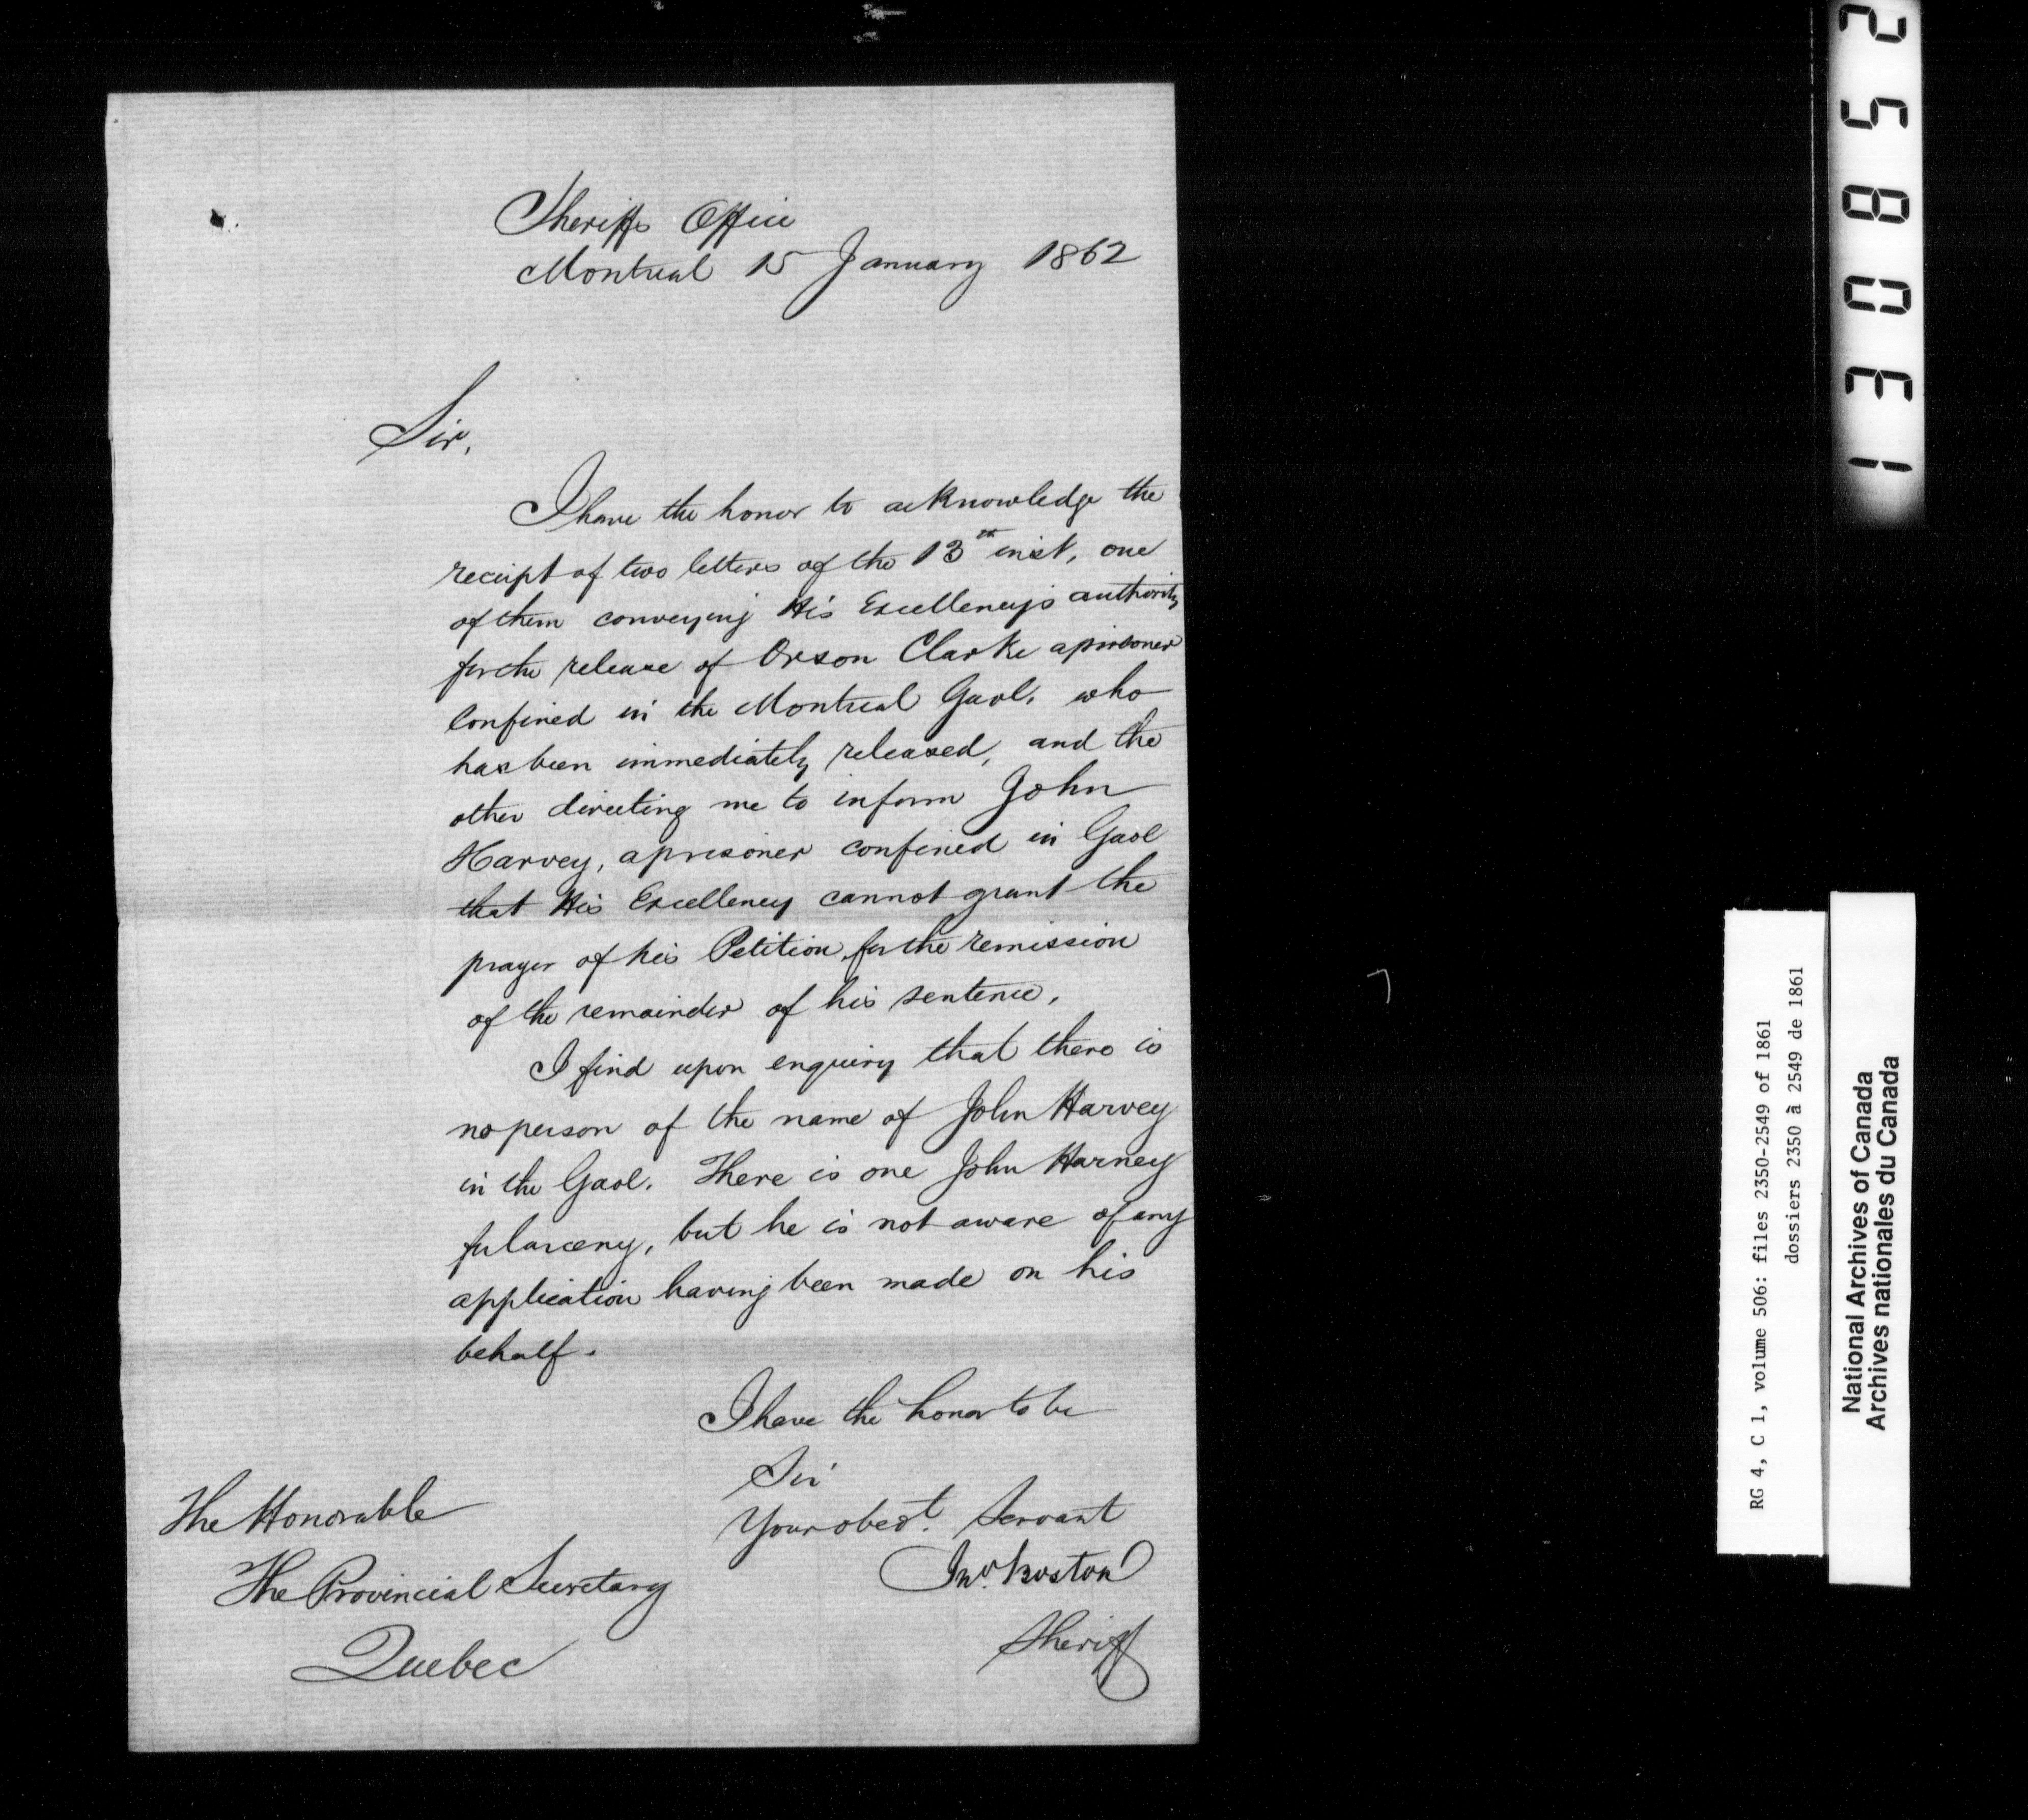 Sheriffs Office
Montreal 15 January 1862
Sir,
I have the honor to acknowledge the
receipt of two letters of the 13th inst, one
of them conveying His Excellency's authority
for the release of Orson Clarke a prisoner
confined in the Montreal Gaol, who
has been immediately released, and the
other directing me to inform John
Harvey, a prisoner confined in Gaol
that His Excellency cannot grant the
prayer of his Petition for the remission
of the remainder of his sentence.
I find upon enquiry that there is
no person of the name of John Harvey
in the Gaol. There is one John Harney
for larceny, but he is not aware of any
application having been made on his
behalf.
I have the honor to be
Sir
Your obedt. Servant
Jno. Boston
Sheriff
The Honorable
The Provincial Secretary
Quebec
RG 4, C 1, volume 506: files 2350-2549 of 1861
dossiers 2350 à 2549 de 1861
National Archives of Canada
Archives nationales du Canada
130852